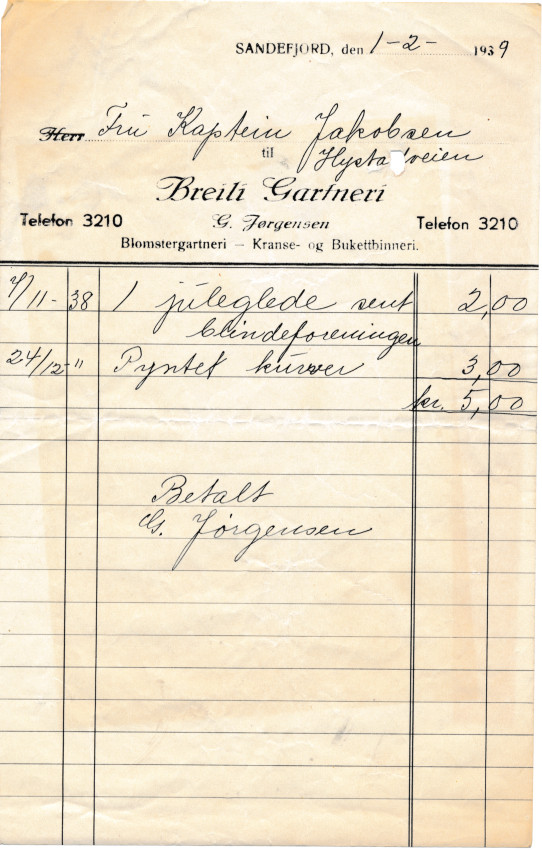 SANDEFJORD, den 1-2- 1939
Herr Fru Kaptein Jakobsen
til Hysta veien
Breili Gartneri
Telefon 3210 G. Jørgensen Telefon 3210
Blomstergartneri — Kranse- og Bukettbinneri.
7/11- 38 1 juleglede sent 2,00
blindeforeningen
24/12- " Pyntet kurver 3,00
kr. 5,00
Betalt
G. Jørgensen